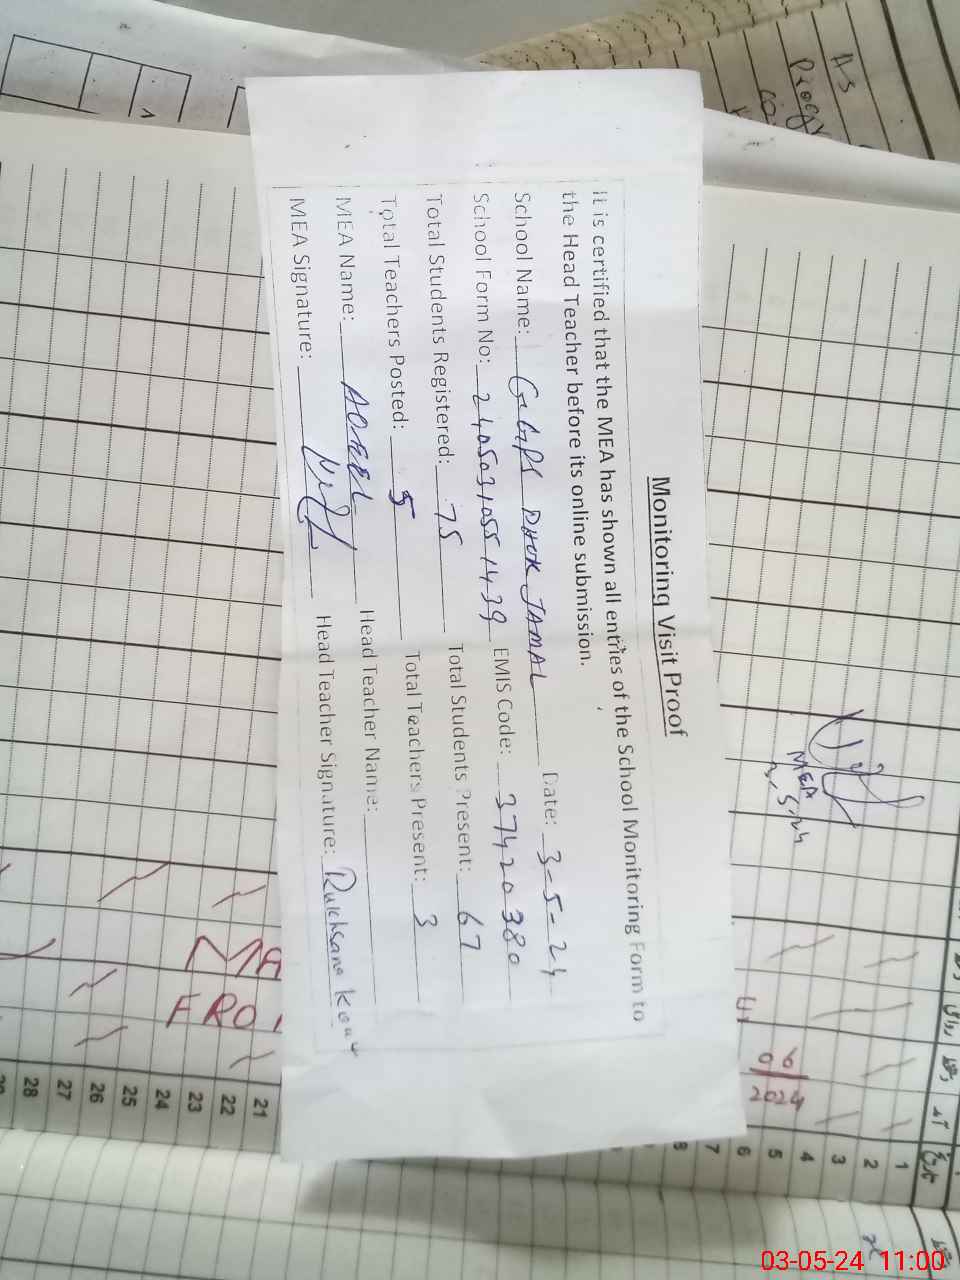 Monitoring Visit Proof
It is certified that the MEA has shown all entries of the School Monitoring Form to
the Head Teacher before its online submission.
School Name: GGPS DHOK JAMAL Date: 3-5-24
School Form No: 24050310551439 EMIS Code: 37420380
Total Students Registered: 75 Total Students Present: 67
Total Teachers Posted: 5 Total Teachers Present: 3
MEA Name: Head Teacher Name:
MEA Signature: Head Teacher Signature: Rukhsana
MEA
3/5/24
06
2024
1
2
3
4
5
6
7
8
21
22
23
24
25
26
27
28
تاریخ
03-05-24 11:00